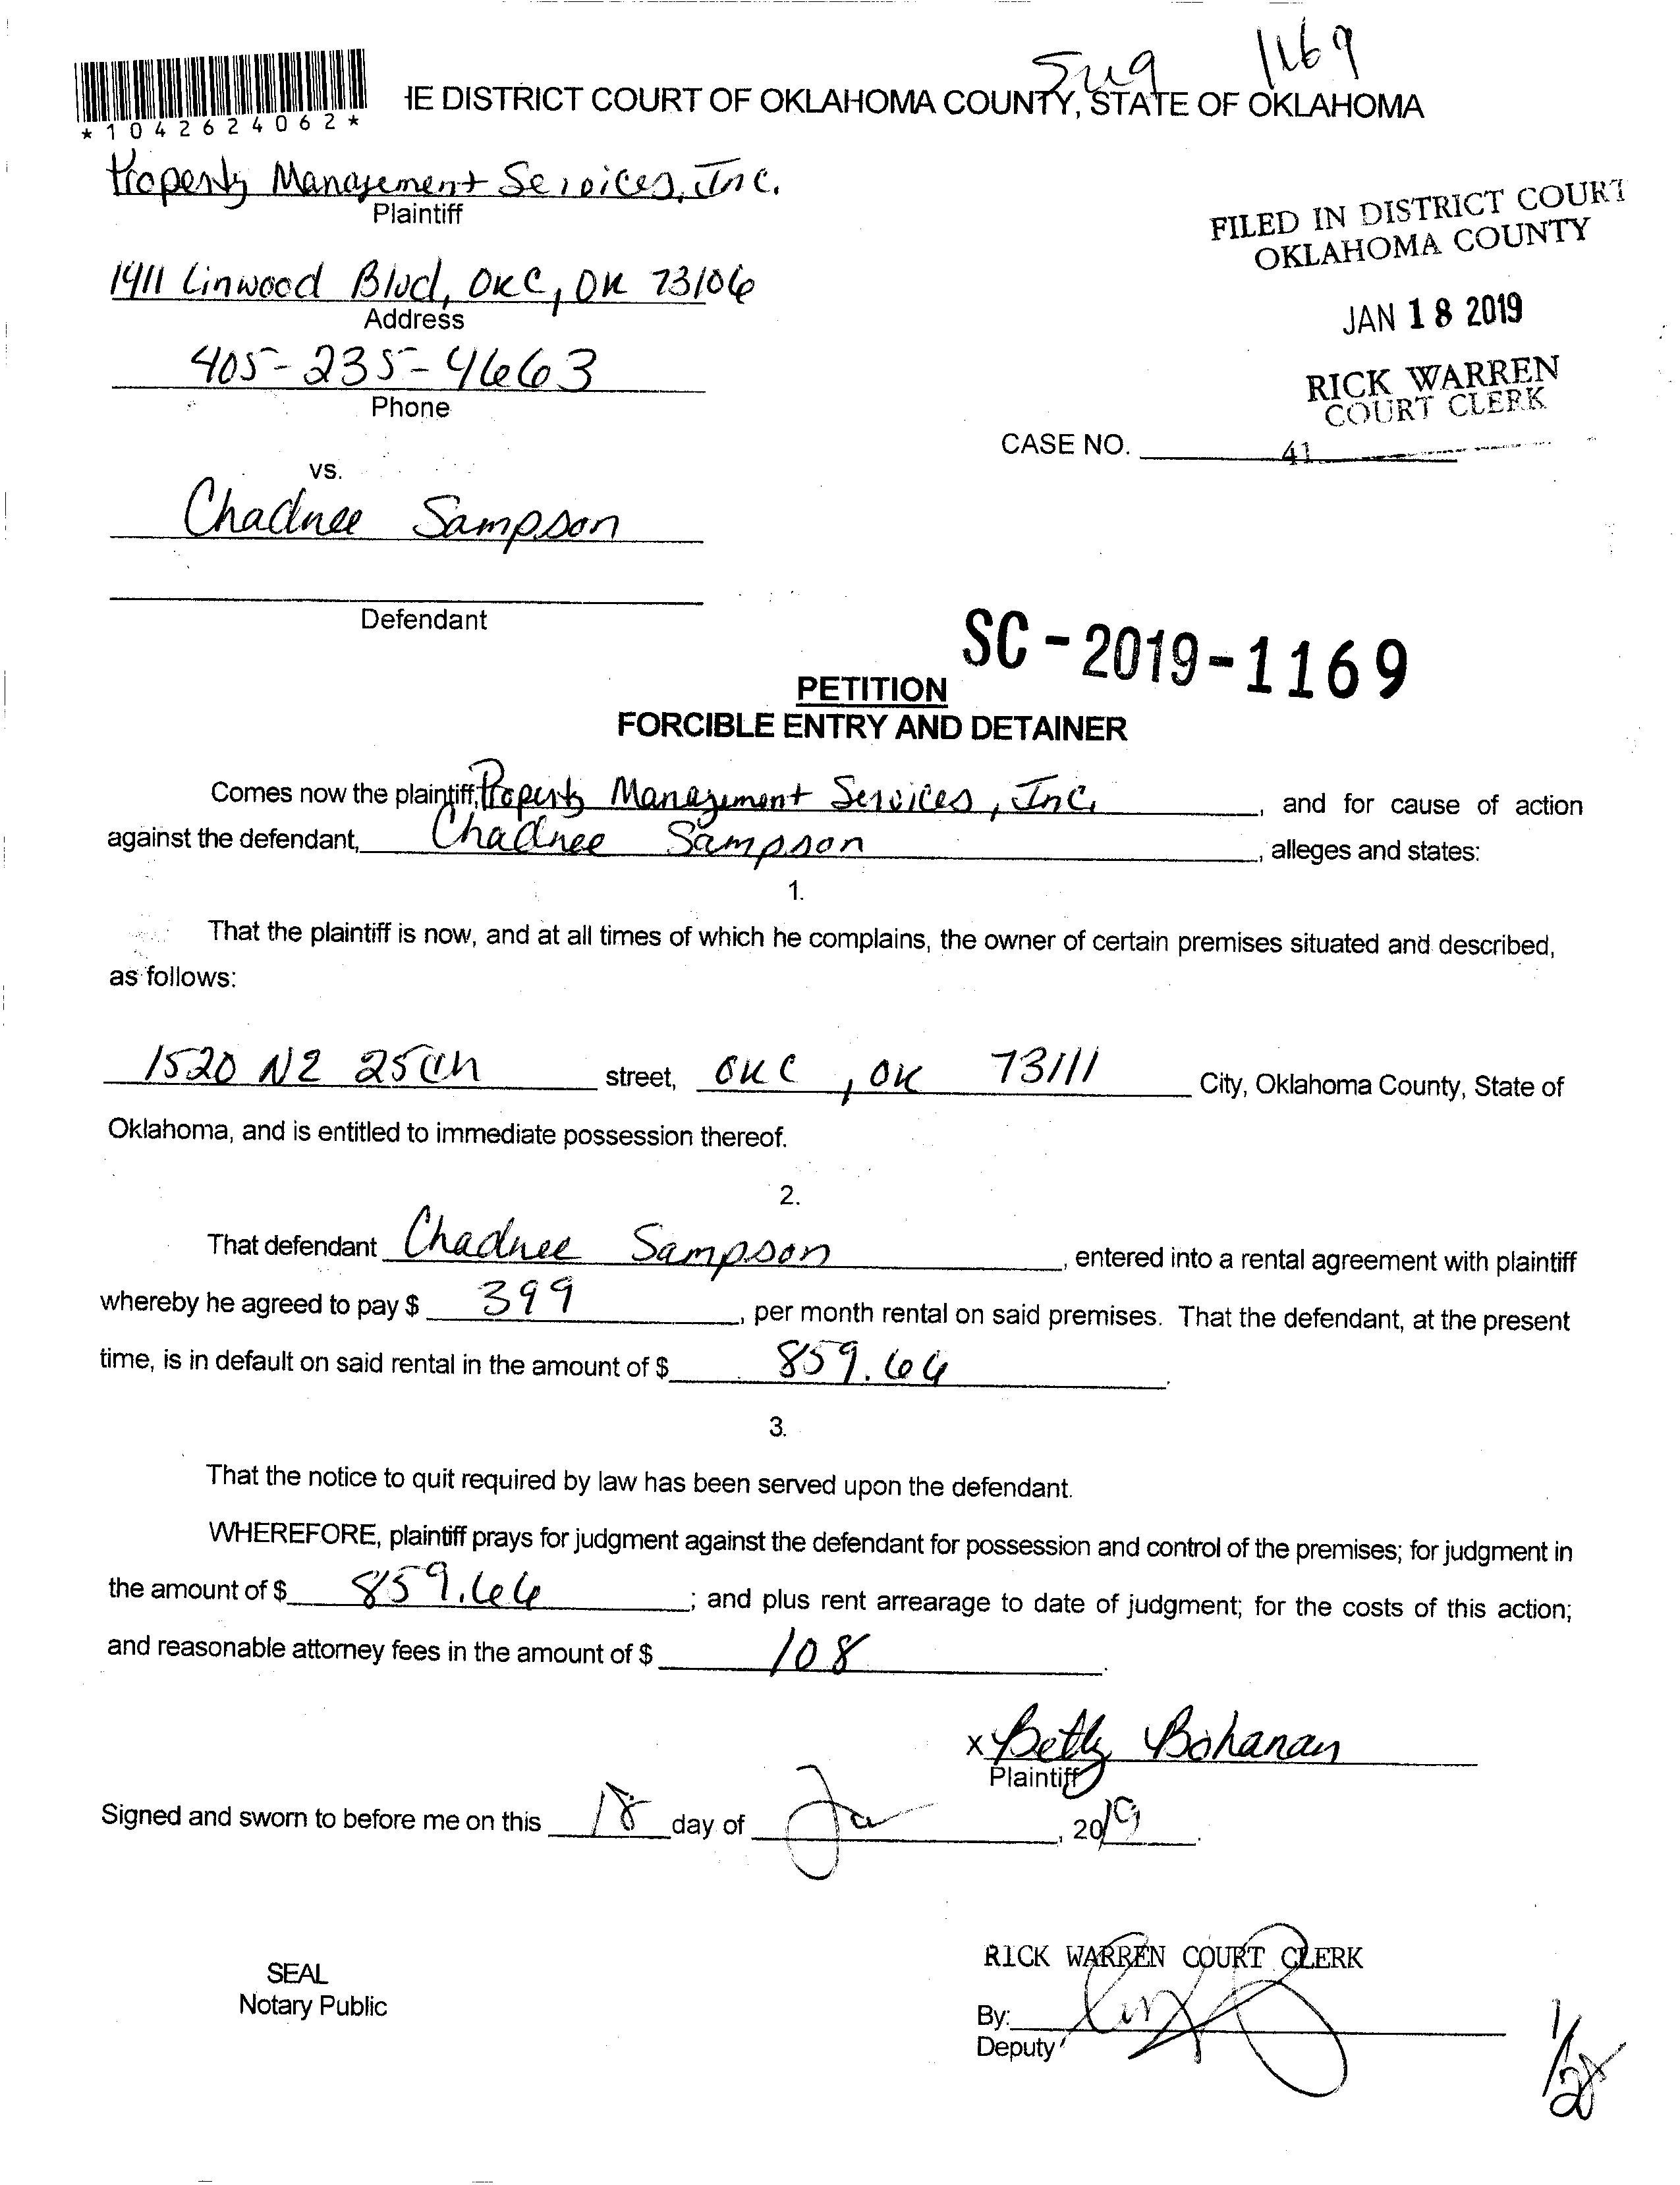 Sug 1169
*1042624062*
IE DISTRICT COURT OF OKLAHOMA COUNTY, STATE OF OKLAHOMA
Property Management Services, Inc.
Plaintiff
FILED IN DISTRICT COURT
OKLAHOMA COUNTY
1411 Linwood Blvd, OKC, OK 73106
Address
JAN 18 2019
405-235-4663
Phone
RICK WARREN
COURT CLERK
CASE NO. 41
vs.
Chadnee Sampson
Defendant
SC-2019-1169
PETITION
FORCIBLE ENTRY AND DETAINER
Comes now the plaintiff, Property Management Services, Inc. , and for cause of action
against the defendant, Chadnee Sampson , alleges and states:
1.
That the plaintiff is now, and at all times of which he complains, the owner of certain premises situated and described,
as follows:
1520 NE 25th street, OKC, OK 73111 City, Oklahoma County, State of
Oklahoma, and is entitled to immediate possession thereof.
2.
That defendant Chadnee Sampson , entered into a rental agreement with plaintiff
whereby he agreed to pay $ 399 , per month rental on said premises. That the defendant, at the present
time, is in default on said rental in the amount of $ 859.66 .
3.
That the notice to quit required by law has been served upon the defendant.
WHEREFORE, plaintiff prays for judgment against the defendant for possession and control of the premises; for judgment in
the amount of $ 859.66 ; and plus rent arrearage to date of judgment; for the costs of this action;
and reasonable attorney fees in the amount of $ 108 .
x Betty Bohanan
Plaintiff
Signed and sworn to before me on this 18 day of Ja , 2019.
RICK WARREN COURT CLERK
SEAL
Notary Public
By:
Deputy
1/28